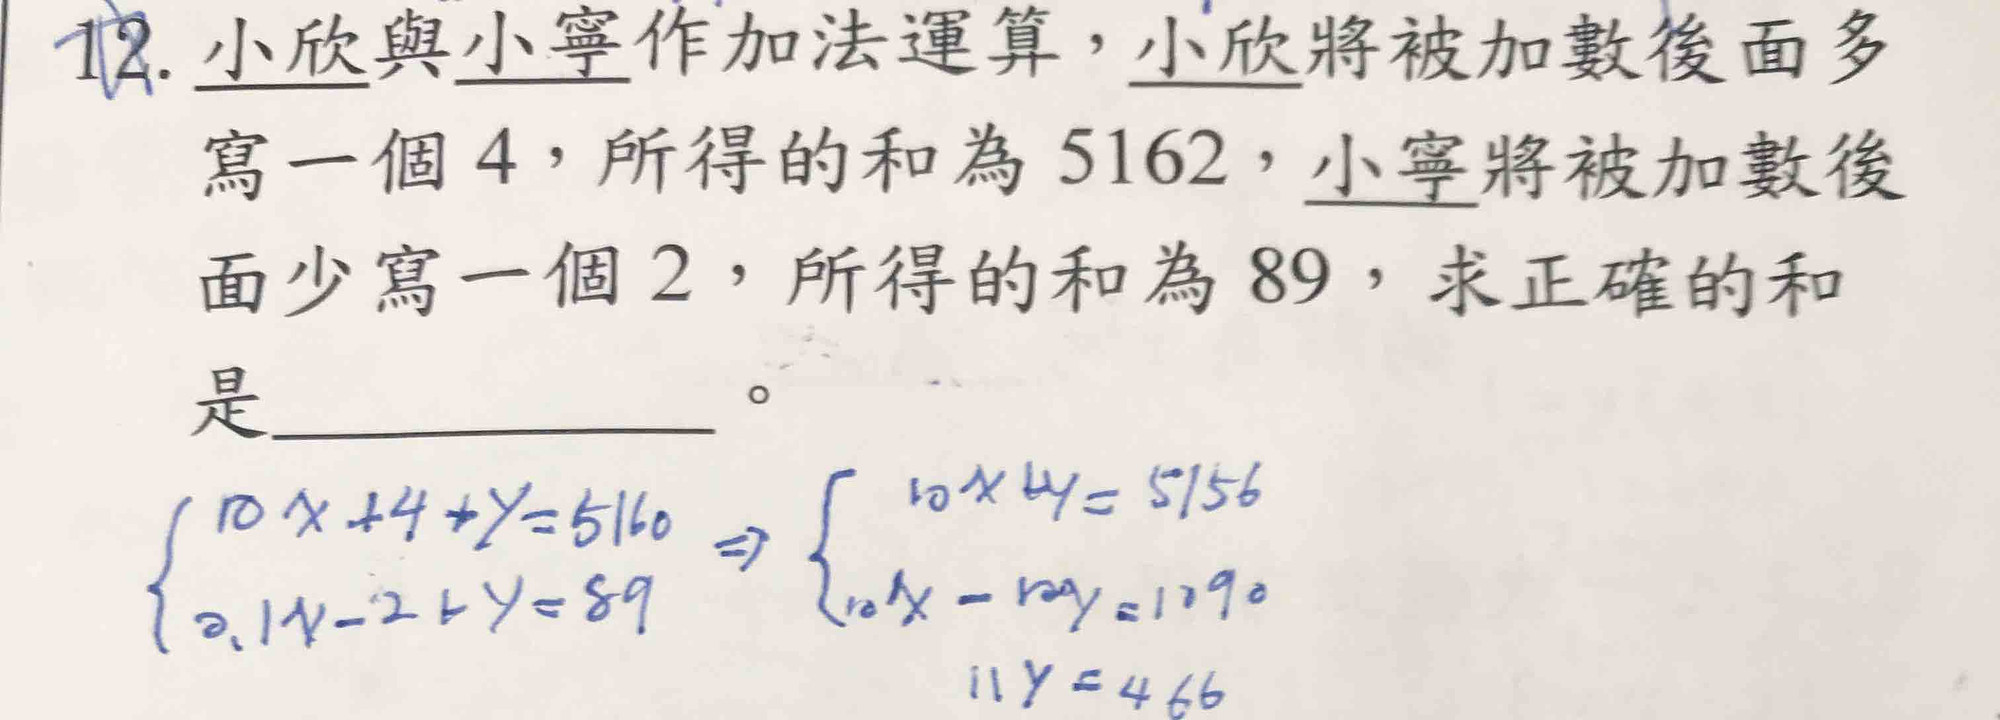 12. 小欣與小寧作加法運算，小欣將被加數後面多
寫一個 4，所得的和為 5162，小寧將被加數後
面少寫一個 2，所得的和為 89，求正確的和
是＿＿＿＿＿。
10x+4+y=5160 ⇒ 10x+y=5156
0.1x-2+y=89
11y=466